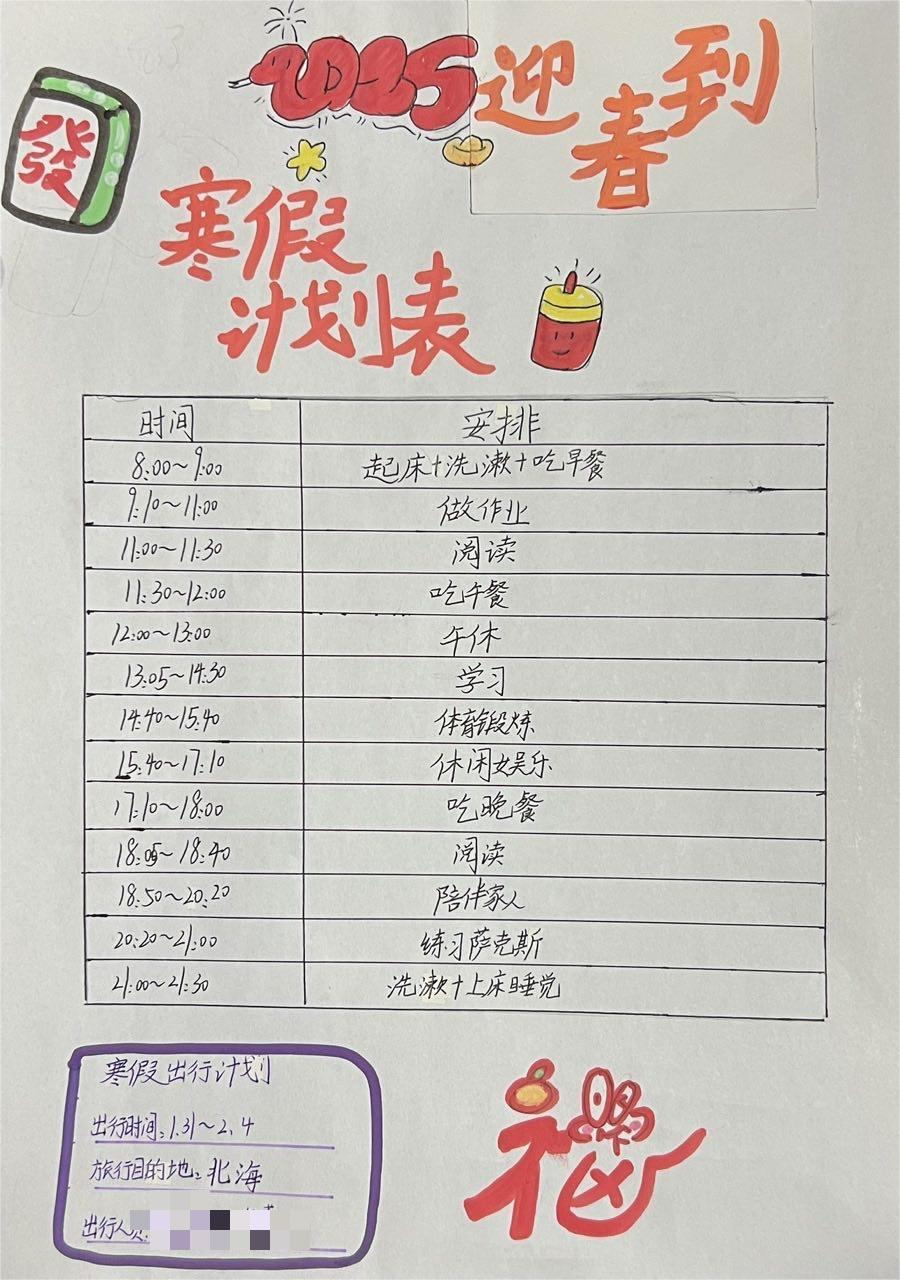 2025 迎春到
發
寒假
计划表
时间 安排
8:00~9:00 起床+洗漱+吃早餐
9:10~11:00 做作业
11:00~11:30 阅读
11:30~12:00 吃午餐
12:00~13:00 午休
13:05~14:30 学习
14:40~15:40 体育锻炼
15:40~17:10 休闲娱乐
17:10~18:00 吃晚餐
18:05~18:40 阅读
18:50~20:20 陪伴家人
20:20~21:00 练习萨克斯
21:00~21:30 洗漱+上床睡觉
寒假出行计划
出行时间:1.31~2.4
旅行目的地:北海
出行人员:
福